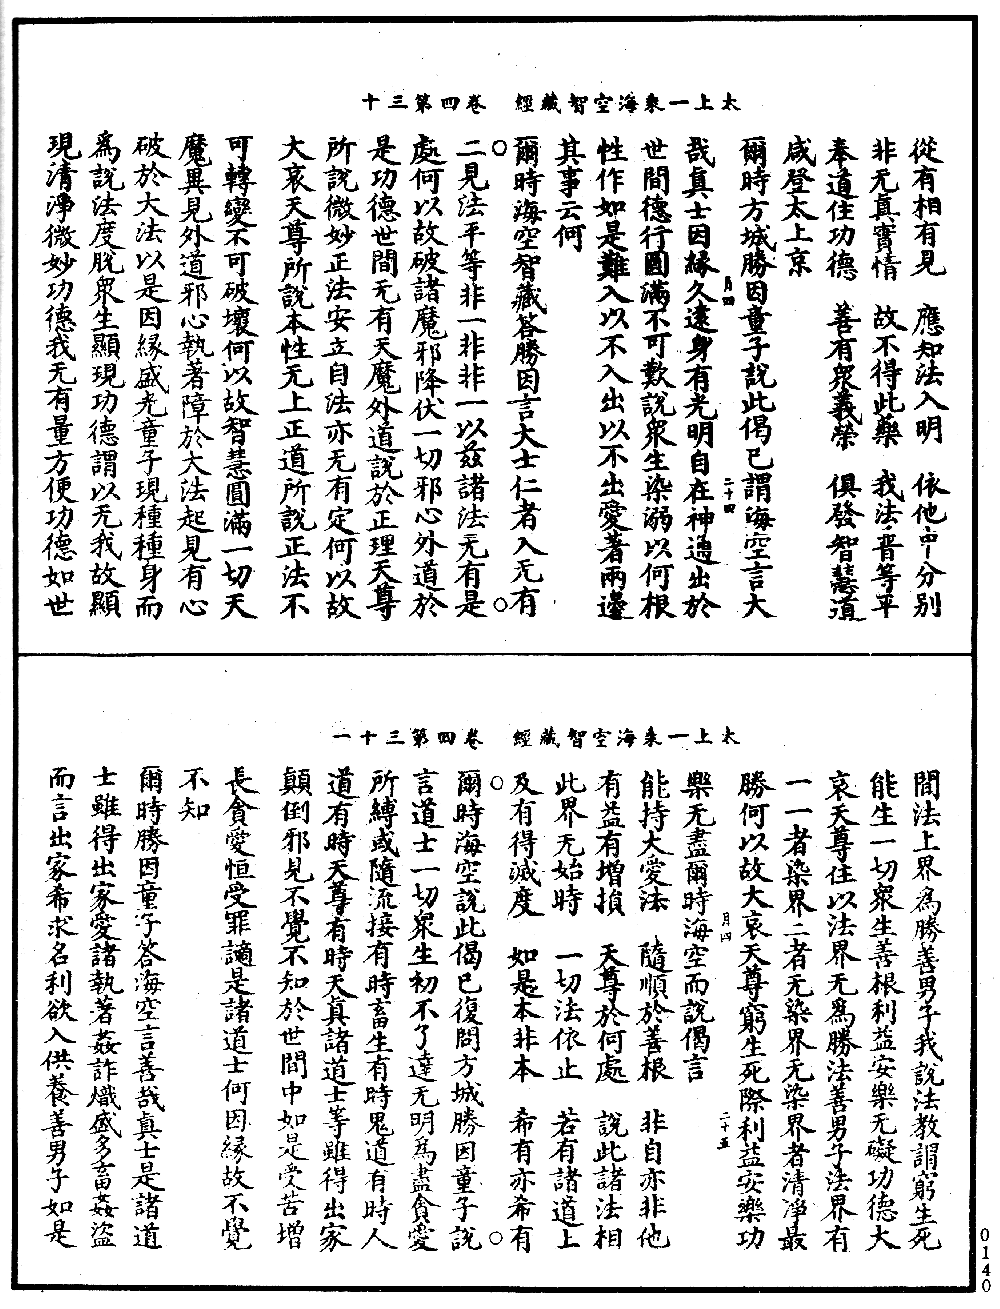 太上一乗海空智藏經　卷四第三十
從有相有見　應知法入明　依他中分別
非无真實情　故不得此藥　我法普等平
奉道住功德　善有衆義榮　俱發智慧道
咸登太上京
爾時方城勝因童子說此偈已謂海空言大
月四
二十四
哉真士因縁久遠身有光明自在神通出於
世間德行圓滿不可歎說衆生染溺以何根
性作如是難入以不入出以不出愛著兩邊
其事云何
爾時海空智藏答勝因言大士仁者入无有
二見法平等非一非非一以兹諸法无有是
處何以故破諸魔邪降伏一切邪心外道於
是功德世間无有天魔外道說於正理天尊
所說微妙正法安立自法亦无有定何以故
大哀天尊所說本性无上正道所說正法不
可轉變不可破壞何以故智慧圓滿一切天
魔異見外道邪心執著障於大法起見有心
破於大法以是因縁盛光童子現種種身而
爲說法度脫衆生顯現功德謂以无我故顯
現清淨微妙功德我无有量方便功德如世
太上一乗海空智藏經　卷四第三十一
間法上界爲勝善男子我說法教謂窮生死
能生一切衆生善根利益安樂无礙功德大
哀天尊住以法界无爲勝法善男子法界有
一一者染界二者无染界无染界者清淨最
勝何以故大哀天尊窮生死際利益安樂功
月四
二十五
樂无盡爾時海空而說偈言
能持大愛法　隨順於善根　非自亦非他
有益有增損　天尊於何處　說此諸法相
此界无始時　一切法依止　若有諸道上
及有得滅度　如是本非本　希有亦希有
爾時海空說此偈已復問方城勝因童子說
言道士一切衆生初不了達无明爲盡貪愛
所縛或隨流接有時畜生有時鬼道有時人
道有時天尊有時天真諸道士等雖得出家
顛倒邪見不覺不知於世間中如是受苦增
長貪愛恒受罪謫是諸道士何因縁故不覺
不知
爾時勝因童子答海空言善哉真士是諸道
士雖得出家愛諸執著姦詐熾盛多畜姦盜
而言出家希求名利欲入供養善男子如是
0140